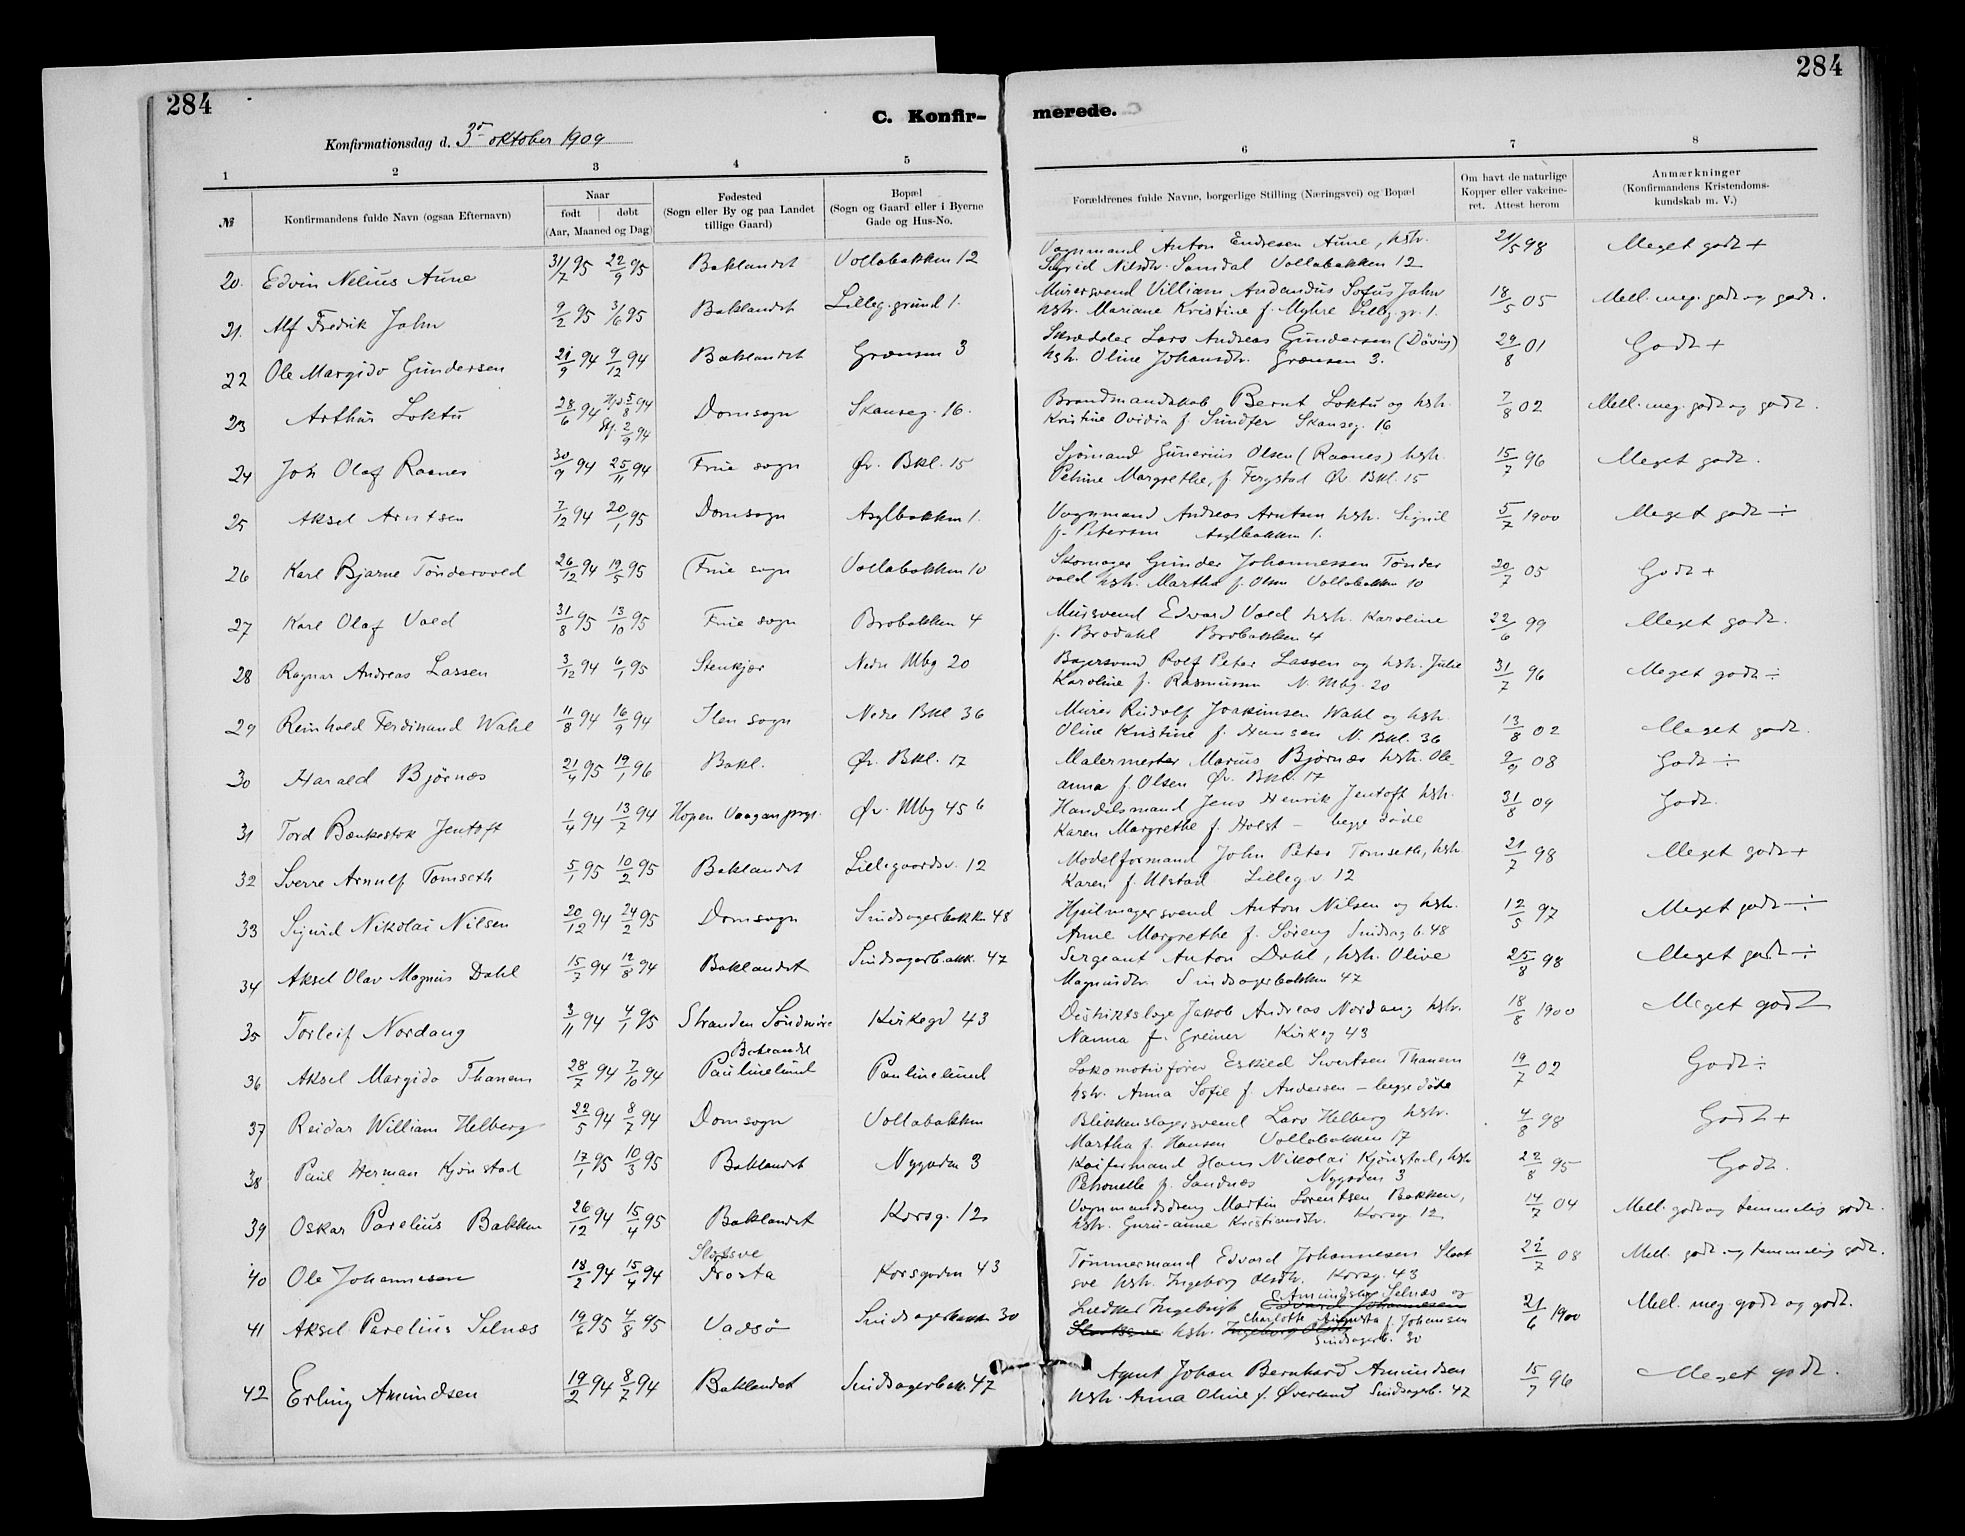 284
284
C. Konfir-
merede.
Konfirmationsdag d. 3 oktober 1909
1 2 3 4 5 6 7 8
№
Konfirmandens fulde Navn (ogsaa Efternavn)
Naar
født | døbt
(Aar, Maaned og Dag)
Fødested
(Sogn eller By og paa Landet
tillige Gaard)
Bopæl
(Sogn og Gaard eller i Byerne
Gade og Hus-No.
Forældrenes fulde Navne, borgerlige Stilling (Næringsvei) og Bopæl
Om havt de naturlige
Kopper eller vakcine-
ret. Attest herom
Anmærkninger
(Konfirmandens Kristendoms-
kundskab m. V.)
20. Edvin Nelius Aune 31/7 95 22/9 95 Baklandet Vollabakken 12 Vognmand Anton Endresen Aune, hstr. 21/5 98 Meget godt +
Sigrid Nilsdtr. Samdal Vollabakken 12
21. Alf Fredrik Jahn 9/2 95 3/6 95 Baklandet Lilleg.grund 1. Murersvend Villiam Andandus Sofus Jahn 18/5 05 Mell. meg. godt og godt.
hstr. Mariane Kristine f. Myhre Lilleg.gr. 1.
22 Ole Margido Gundersen 21/9 94 9/12 94 Baklandet Grænsen 3 Skrædder Lars Andreas Gundersen (Døving) 29/8 01 Godt +
hstr. Oline Johansdtr. Grænsen 3.
23 Arthur Loktu 28/6 94 5/8 94 2/9 94 Domsogn Skanseg. 16. Brandmandskab Bernt Loktu og hstr. 7/8 02 Mell. meg. godt og godt.
Kristine Ovidia f. Sundfær Skanseg. 16
24 Joh Olaf Raanes 30/9 94 25/11 94 Frue sogn Øv. Bkl. 15 Sjømand Gunerius Olsen (Raanes) hstr. 15/7 96 Meget godt.
Petrine Margrethe, f. Fergstad Øv. Bkl. 15
25 Aksel Arntsen 7/12 94 20/1 95 Domsogn Asylbakken 1. Vognmand Andreas Arntsen hstr. Signil 5/7 1900 Meget godt ÷
f. Petersen Asylbakken 1.
26 Karl Bjarne Tøndervold 26/12 94 19/5 95 Frue sogn Vollabakken 10 Skomager Gunder Johannessen Tønder 20/7 05 Godt +
vold hstr. Martha f. Olsen Vollabakken 10
27 Karl Olaf Vold 31/8 95 13/10 95 Frue sogn Brobakken 4 Mursvend Edvard Vold hstr. Karoline 22/6 99 Meget godt.
f. Brodahl Brobakken 4
28 Ragnar Andreas Lassen 3/12 94 6/1 95 Stenkjær Nedre Mbg 20 Bagersvend Rolf Peter Lassen og hstr. Julie 31/7 96 Meget godt ÷
Karoline f. Rasmussen N. Mbg. 20
29 Reinhold Ferdinand Wahl 11/8 94 16/9 94 Ilen sogn Nedre Bkl 36 Murer Rudolf Joakimsen Wahl og hstr. 13/8 02 Meget godt.
Oline Kristine f. Hansen N. Bkl. 36
30 Harald Bjørnæs 21/4 95 19/1 96 Bakl. Øv. Bkl. 17 Malermester Marius Bjørnæs hstr. Ole- 9/9 08 Godt ÷
anna f. Olsen Øv. Bkl. 17
31 Tord Benkestok Jentoft 1/4 94 13/7 94 Hopen Vaagan prgj. Øv. Mbg 45 b Handelsmand Jens Henrik Jentoft hstr. 31/8 09 Godt.
Karen Margrethe f. Holst – begge døde
32 Sverre Arnulf Tomseth 5/1 95 10/2 95 Baklandet Lillegaardsv. 12 Modelformand John Peter Tomseth, hstr 21/7 98 Meget godt +
Karen f. Ulstad Lilleg.v. 12
33 Sigurd Nikolai Nilsen 20/12 94 24/2 95 Domsogn Sindsagerbakken 48 Hjulmagersvend Anton Nilsen og hstr. 12/5 97 Meget godt ÷
Anne Margrethe f. Søreng Sindsag.b. 48
34 Aksel Olav Magnus Dahl 15/7 94 12/8 94 Baklandet Sindsagerbakk. 47 Sergeant Anton Dahl, hstr. Olive 25/8 98 Meget godt ÷
Magnusdtr. Sindsagerbakken 47
35 Torleif Nordang 3/11 94 4/1 95 Stranden Søndmøre Kirkegd 43 Distriktslæge Jakob Andreas Nordang hstr. 18/8 1900 Meget godt
Nanna f. Greiner Kirkeg 43
36 Aksel Margido Thanem 28/7 94 7/10 94 Baklandet Paulinelund Paulinelund Lokomotivfører Eskild Sivertsen Thanem 19/7 02 Godt ÷
hstr. Anna Sofie f. Andersen – begge døde
37 Reidar William Helberg 22/5 94 8/7 94 Domsogn Vollabakken Blikkenslagersvend Lars Helberg hstr. 4/8 98 Godt +
Martha f. Hansen Vollabakken 17
38 Paul Herman Kjønstad 17/1 95 10/3 95 Baklandet Nygaden 3 Koifarmand Hans Nikolai Kjønstad, hstr 22/8 95 Godt.
Petronelle f. Sandnæs Nygaden 3
39 Oskar Parelius Bakken 26/12 94 15/4 95 Baklandet Korsg. 12 Vognmandsdreng Martin Lorentsen Bakken, 14/7 04 Mell. godt og temmelig godt.
hstr. Guru-anne Kristiansdtr. Korsg. 12
40 Ole Johannesen 18/2 94 15/4 94 Slotsve Frosta Korsgaden 43 Tømmermand Edvard Johannesen Sloot 22/7 08 Mell. godt og temmelig godt.
sve hstr. Ingeborg Olsdtr. Korsg. 43
41 Aksel Parelius Selnæs 19/6 95 4/8 95 Vadsø Sindsagerbakken 30 Snedker Ingebrigt Edvard Johannesen Amundsen Selnæs og 21/6 1900 Mell. meg godt og godt.
Slootsve hstr. Ingeborg Olsdtr Charlotte Augusta f. Johansen
Sindsagerb. 30
42 Erling Amundsen 19/2 94 8/7 94 Baklandet Sindsagerbak. 47 Agent Johan Bernhard Amundsen 15/7 96 Meget godt.
hstr. Anna Oline f. Øverland Sindsagerb. 47